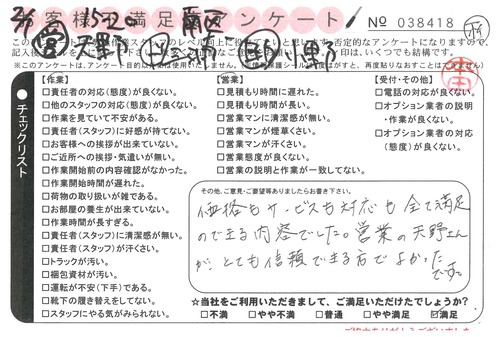 お客様満足アンケート
№ 038418
チェックリスト
【作業】
□責任者の対応(態度)が良くない。
□他のスタッフの対応(態度)が良くない。
□作業を見ていて不安がある。
□責任者(スタッフ)に好感が持てない。
□お客様への挨拶が出来ていない。
□ご近所への挨拶・気遣いが無い。
□作業開始前の内容確認がなかった。
□作業開始時間が遅れた。
□荷物の取り扱いが雑である。
□お部屋の養生が出来ていない。
□作業時間が長すぎる。
□責任者(スタッフ)に清潔感が無い。
□責任者(スタッフ)が汗くさい。
□トラックが汚い。
□梱包資材が汚い。
□運転が不安(下手)である。
□靴下の履き替えをしてない。
□スタッフにやる気がみられない。
【営業】
□見積もり時間に遅れた。
□見積もり時間が長い。
□営業マンに清潔感が無い。
□営業マンが煙草くさい。
□営業マンが汗くさい。
□営業態度が良くない。
□営業の説明と作業が一致してない。
【受付・その他】
□電話の対応が良くない。
□オプション業者の説明
・作業が良くない。
□オプション業者の対応
(態度)が良くない。
その他、ご意見・ご要望等ありましたらお書き下さい。
価格もサービスも対応も全て満足
のできる内容でした。営業の天野さん
が、とても信頼できる方でよかった
です。
☆当社をご利用いただきまして、ご満足いただけたでしょうか?
□不満 □やや不満 □普通 □やや満足 ☑満足